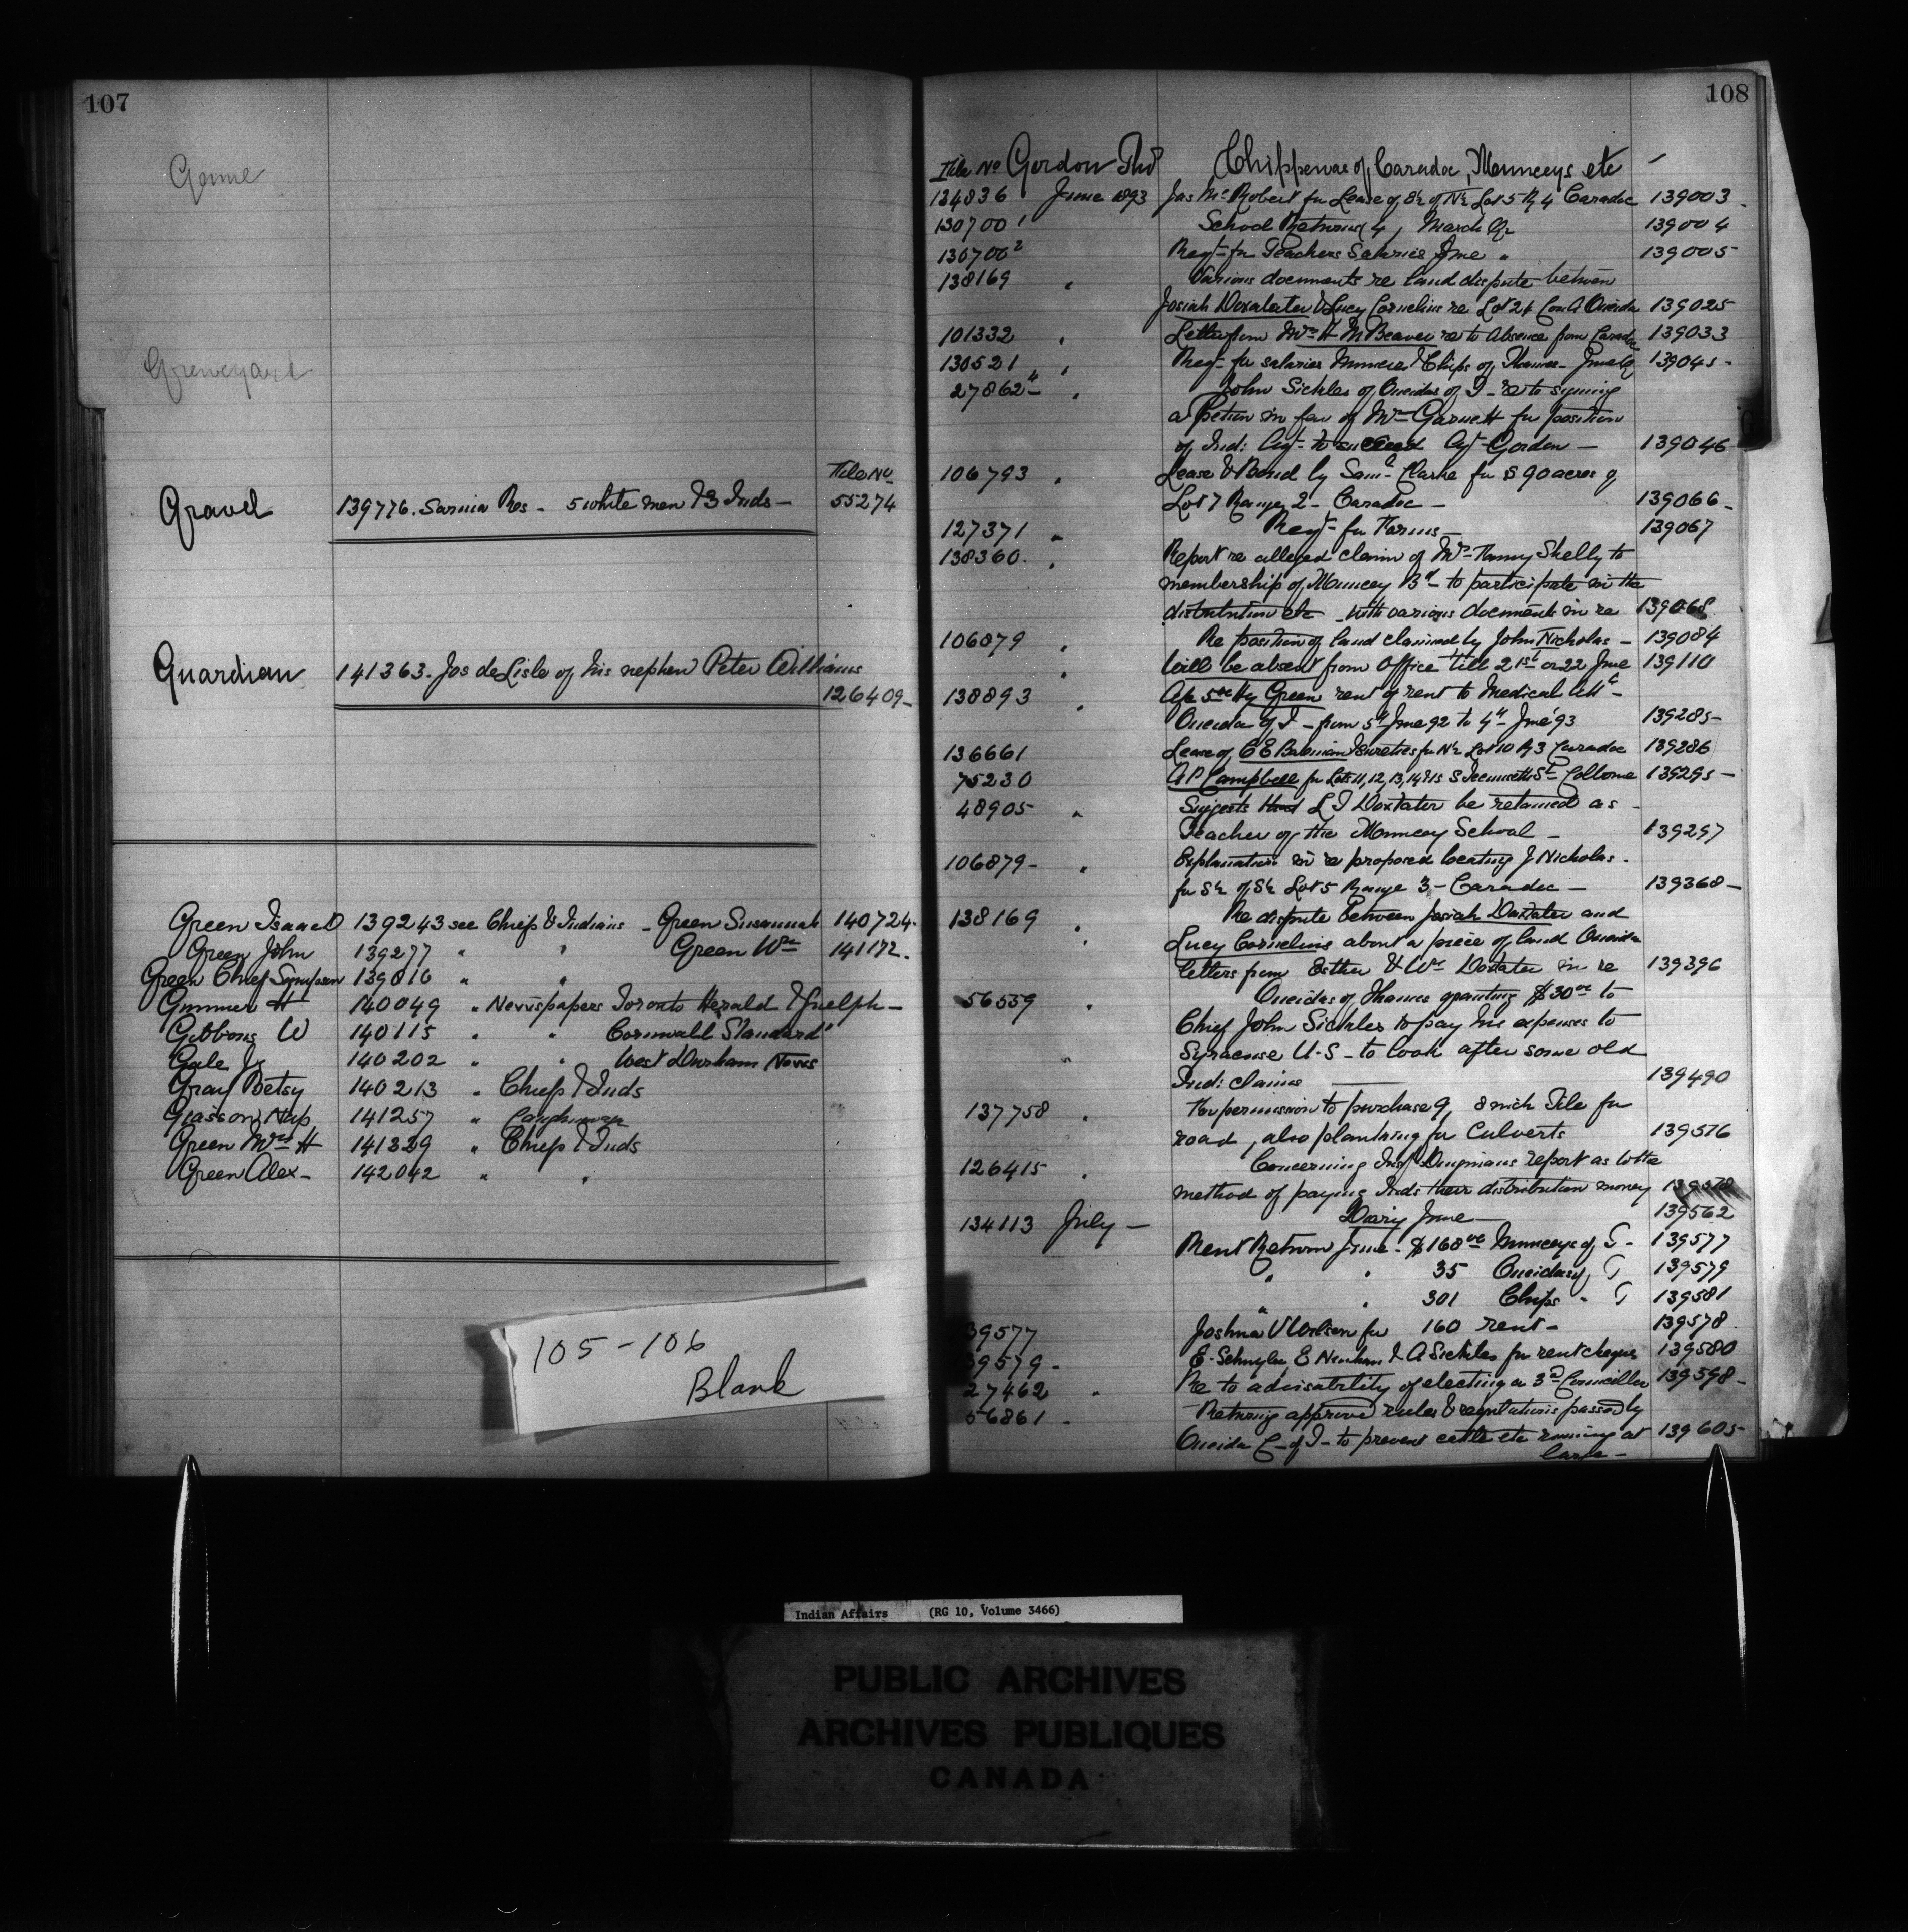 107
Game
Graveyard
File No
Gravel 139776. Sarnia Res - 5 white men & 3 Inds - 55274
Guardian 141363. Jos de Lisle of his nephew Peter Williams
126409 -
Green Isaac 139243 see Chiefs & Indians - Green Susannah 140724 -
Green John 139277 " " Green Wm 141172.
Green Chief Sympson 139816 " "
Gummer H 140049 " Newspapers Toronto Herald & Guelph -
Gibbons W 140115 " " Cornwall Standard
Gale Js 140202 " " West Durham News
Gray Betsy 140213 " Chiefs & Inds
Giasson Nap 141257 " Caughnawaga
Green Mrs H 141329 " Chiefs & Inds
Green Alex - 142042 " "
105 - 106
Blank
108
File No Gordon Thos Chippewas of Caradoc, Munceys etc
134836 June 1893 Jas Mc Robert for Lease of S½ of N½ Lot 5 R 4 Caradoc 139003
130700 1 School Returns 4, March Qr 139004
130700 2 Reqt for Teachers Salaries June " 139005
138169 " Various documents re land dispute between
Josiah Doxtater & Lucy Cornelius re Lot 24 Con A Oneida 139025
101332 " Letter from Mrs H M Beaver re to Absence from Caradoc 139033
130521 " Reqt for salaries Muncey & Chips of Thames - June Q 139045 -
27862 - " John Sickles of Oneidas of T - re to signing
a Petion in fav of Mr Garnett for position
of Ind: Agt - to succeed Agt Gordon - 139046
106793 " Lease & Bond by Saml Clarke for S 90 acres of
Lot 7 Range 2 - Caradoc - 139066 -
127371 " Reqt - for Forms - 139067
138360. " Report re alleged claim of Mrs Fanny Shelly to
membership of Muncey Bd - to participate in the
distribution etc - with various documents in re 139068
106879 " Re position of land claimed by John Nicholas - 139084
" Will be absent from Office till 21st or 22 June 139110
138893 " Hy Green rent of rent to Medical
Oneida of T - from 5th June 92 to 4th June '93 139285 -
136661 Lease of & Sureties for N½ Lot 10 R 3 Caradoc 139286
75230 A P Campbell for Lots 11, 12, 13, 14 & 15 S Tecumseth St Colborne 139295 -
48905 " Suggests that L T Doxtater be retained as
Teacher of the Muncey School - 139297
106879 - " Explanation in re proposed locating J Nicholas -
for S½ of S½ Lot 5 Range 3 - Caradoc - 139368 -
138169 " Re dispute between Josiah Doxtater and
Lucy Cornelius about a piece of land Oneida
letters from Esther & Wm Doxtater in re 139396
56559 " Oneidas of Thames granting $30 00 to
Chief John Sickles to pay his expenses to
Syracuse U.S - to look after some old
Ind: claims 139490
137758 " For permission to purchase 9, 8 inch Tile for
road, also planking for Culverts 139516
126415 " Concerning Insp Dingmans report as to the
method of paying Inds their distribution money 139578
134113 July - Diary June - 139562
Rent Return June - $168 00 Munceys of T - 139577
" " 35 Oneidas of T 139579
" " 301 Chips " T 139581
39577 Joshua Wilson for 160 rent - 139578
39579 - E. Schuyler, E Ninham & A Sickles for rent cheques 139580
27462 " Re to advisability of electing a 3rd Councillor 139598 -
56861 - Returning approved rules & regulations passed by
Oneida C - of T - to prevent cattle etc running at 139605 -
large -
Indian Affairs (RG 10, Volume 3466)
PUBLIC ARCHIVES
ARCHIVES PUBLIQUES
CANADA